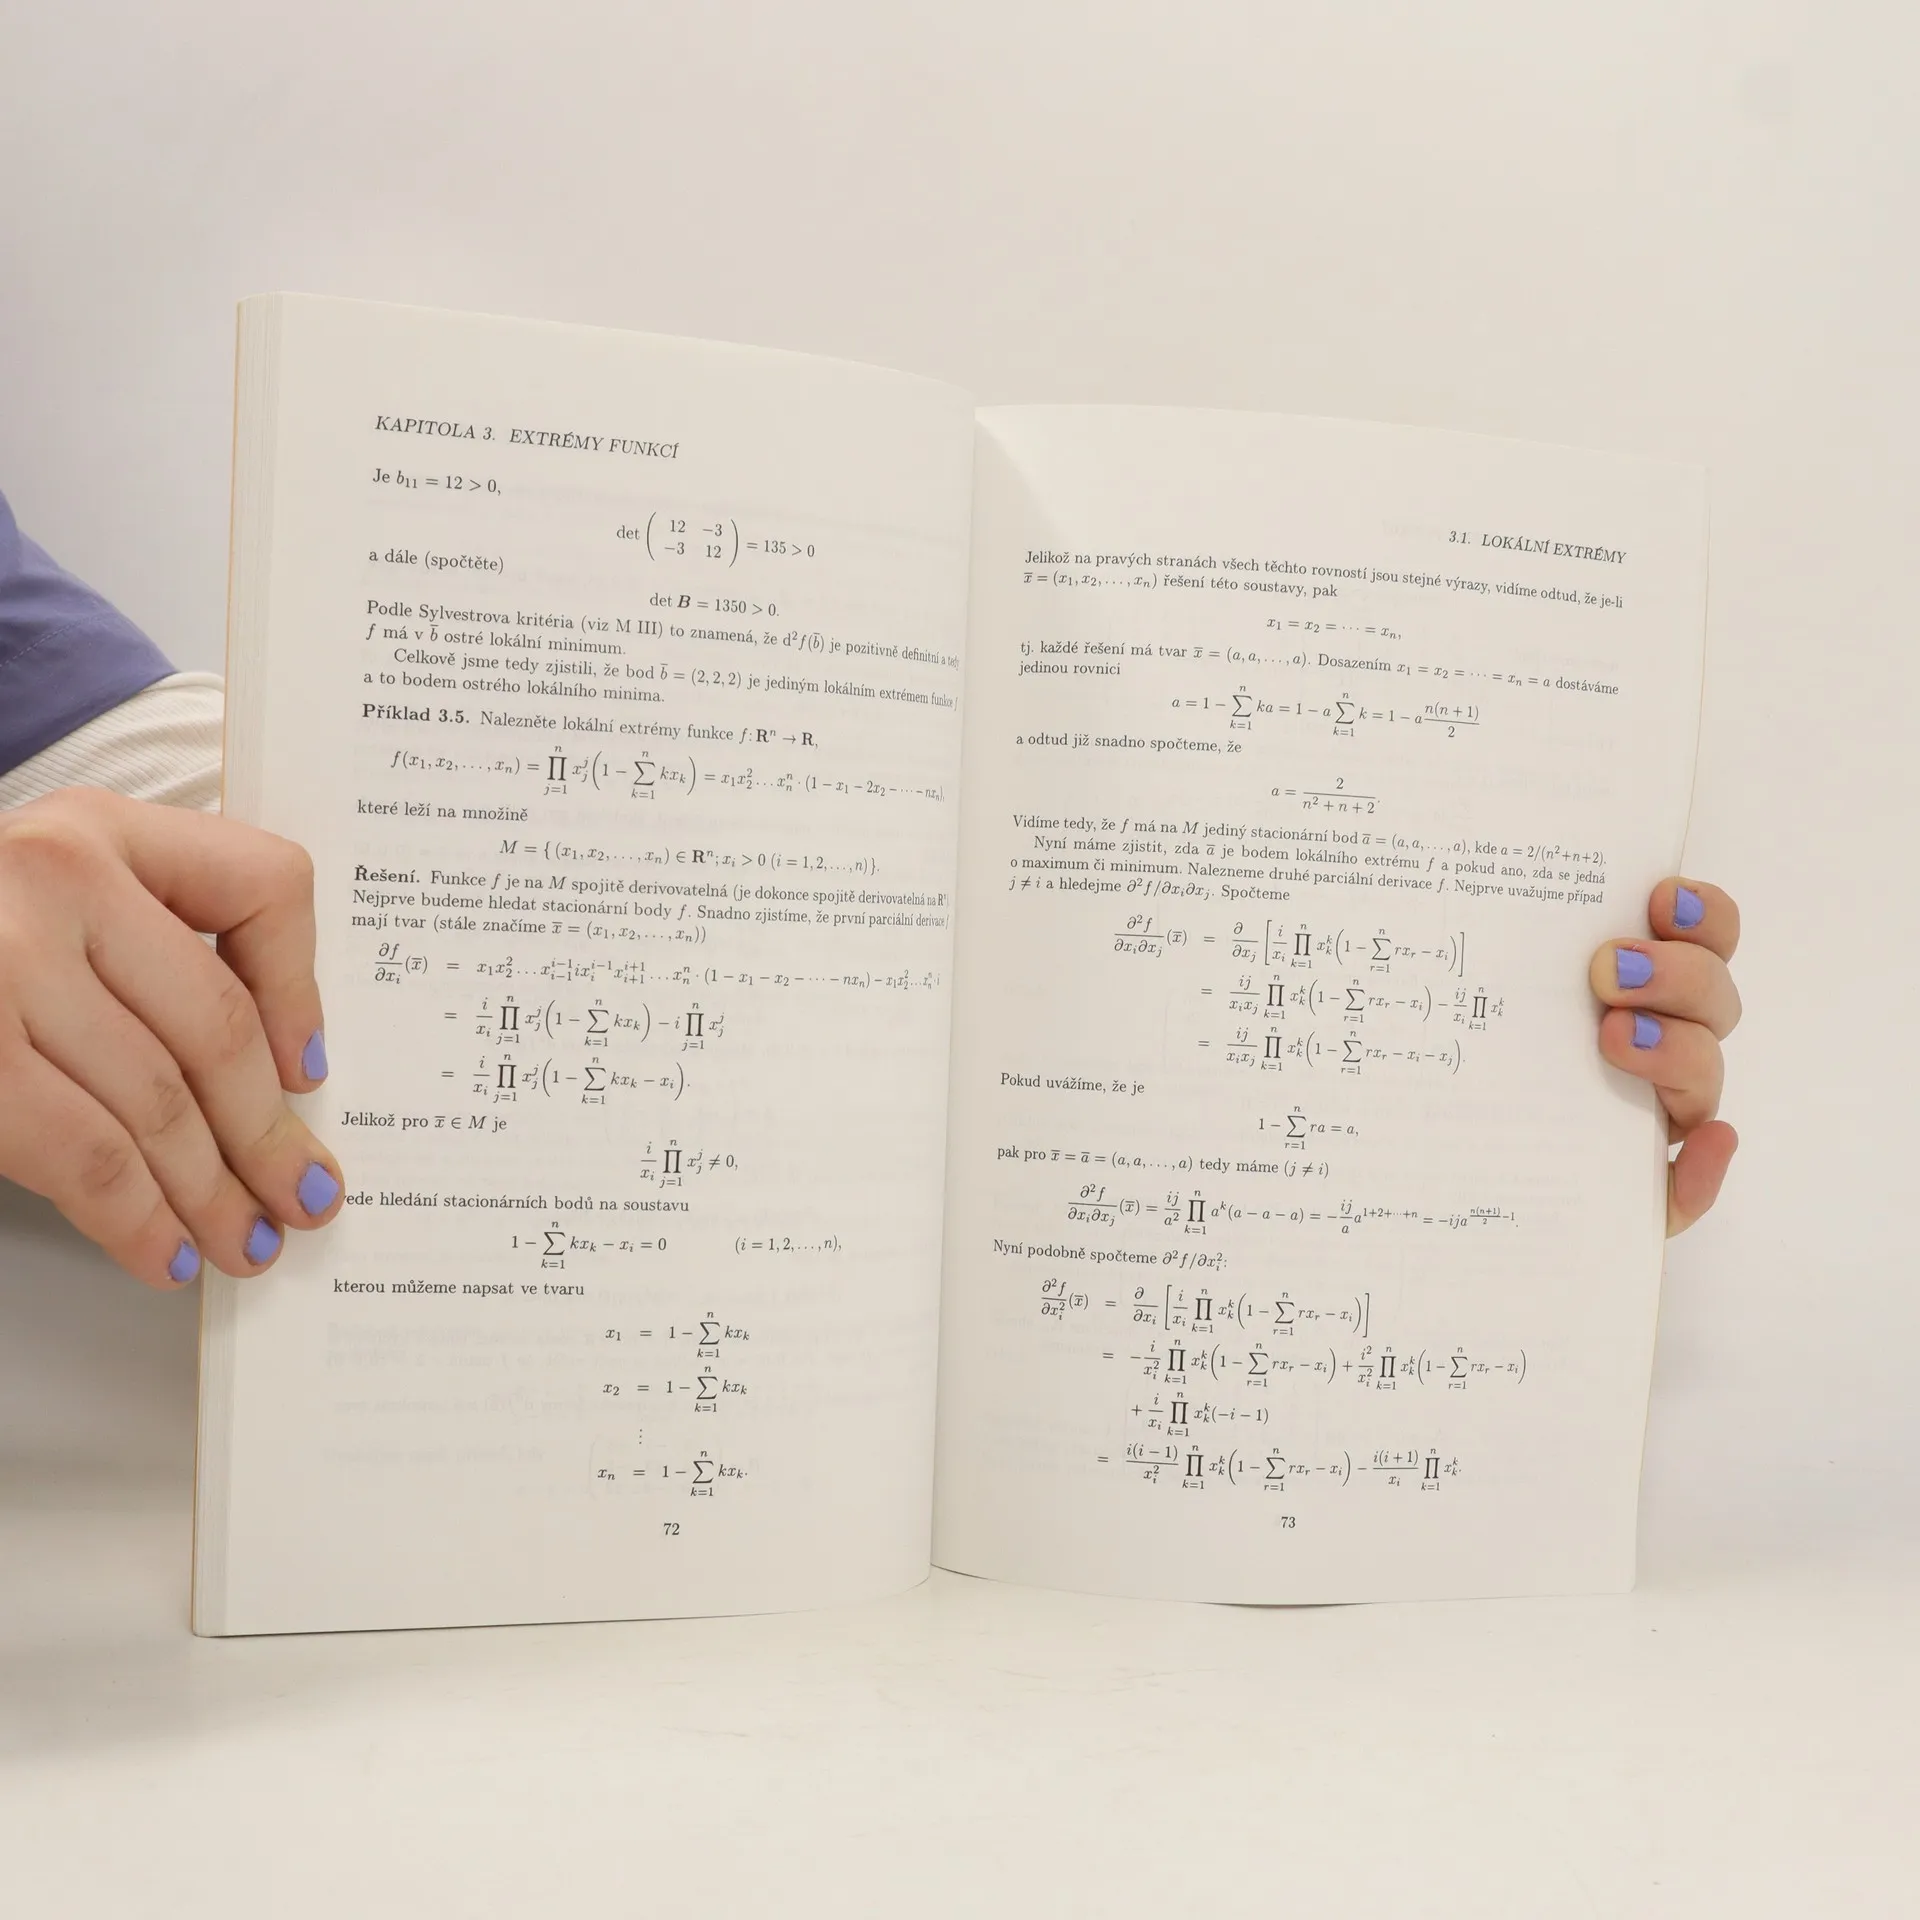 KAPITOLA 3. EXTRÉMY FUNKCÍ
Je b₁₁ = 12 > 0,
det ( 12 −3 ; −3 12 ) = 135 > 0
a dále (spočtěte)
det B = 1350 > 0.
Podle Sylvestrova kritéria (viz M III) to znamená, že d²f(b̄) je pozitivně definitní a tedy
f má v b̄ ostré lokální minimum.
Celkově jsme tedy zjistili, že bod b̄ = (2, 2, 2) je jediným lokálním extrémem funkce f
a to bodem ostrého lokálního minima.
Příklad 3.5. Nalezněte lokální extrémy funkce f: Rⁿ → R,
f(x₁, x₂, . . . , xₙ) = ∏_{j=1}^{n} x_j^j (1 − ∑_{k=1}^{n} kx_k) = x₁x₂² . . . xₙⁿ · (1 − x₁ − 2x₂ − · · · − nxₙ),
které leží na množině
M = { (x₁, x₂, . . . , xₙ) ∈ Rⁿ; x_i > 0 (i = 1, 2, . . . , n) }.
Řešení. Funkce f je na M spojitě derivovatelná (je dokonce spojitě derivovatelná na Rⁿ).
Nejprve budeme hledat stacionární body f. Snadno zjistíme, že první parciální derivace f
mají tvar (stále značíme x̄ = (x₁, x₂, . . . , xₙ))
∂f/∂x_i (x̄) = x₁x₂² . . . x_{i−1}^{i−1} i x_i^{i−1} x_{i+1}^{i+1} . . . xₙⁿ · (1 − x₁ − x₂ − · · · − nxₙ) − x₁x₂² . . . xₙⁿ · i
= i/x_i ∏_{j=1}^{n} x_j^j (1 − ∑_{k=1}^{n} kx_k) − i ∏_{j=1}^{n} x_j^j
= i/x_i ∏_{j=1}^{n} x_j^j (1 − ∑_{k=1}^{n} kx_k − x_i).
Jelikož pro x̄ ∈ M je
i/x_i ∏_{j=1}^{n} x_j^j ≠ 0,
vede hledání stacionárních bodů na soustavu
1 − ∑_{k=1}^{n} kx_k − x_i = 0 (i = 1, 2, . . . , n),
kterou můžeme napsat ve tvaru
x₁ = 1 − ∑_{k=1}^{n} kx_k
x₂ = 1 − ∑_{k=1}^{n} kx_k
⋮
xₙ = 1 − ∑_{k=1}^{n} kx_k.
72
3.1. LOKÁLNÍ EXTRÉMY
Jelikož na pravých stranách všech těchto rovností jsou stejné výrazy, vidíme odtud, že je-li
x̄ = (x₁, x₂, . . . , xₙ) řešení této soustavy, pak
x₁ = x₂ = · · · = xₙ,
tj. každé řešení má tvar x̄ = (a, a, . . . , a). Dosazením x₁ = x₂ = · · · = xₙ = a dostáváme
jedinou rovnici
a = 1 − ∑_{k=1}^{n} ka = 1 − a ∑_{k=1}^{n} k = 1 − a n(n + 1)/2
a odtud již snadno spočteme, že
a = 2/(n² + n + 2).
Vidíme tedy, že f má na M jediný stacionární bod ā = (a, a, . . . , a), kde a = 2/(n²+n+2).
Nyní máme zjistit, zda ā je bodem lokálního extrému f a pokud ano, zda se jedná
o maximum či minimum. Nalezneme druhé parciální derivace f. Nejprve uvažujme případ
j ≠ i a hledejme ∂²f/∂x_i∂x_j. Spočteme
∂²f/∂x_i∂x_j (x̄) = ∂/∂x_j [ i/x_i ∏_{k=1}^{n} x_k^k (1 − ∑_{r=1}^{n} rx_r − x_i) ]
= ij/x_ix_j ∏_{k=1}^{n} x_k^k (1 − ∑_{r=1}^{n} rx_r − x_i) − ij/x_i ∏_{k=1}^{n} x_k^k
= ij/x_ix_j ∏_{k=1}^{n} x_k^k (1 − ∑_{r=1}^{n} rx_r − x_i − x_j).
Pokud uvážíme, že je
1 − ∑_{r=1}^{n} ra = a,
pak pro x̄ = ā = (a, a, . . . , a) tedy máme (j ≠ i)
∂²f/∂x_i∂x_j (x̄) = ij/a² ∏_{k=1}^{n} a^k (a − a − a) = − ij/a a^{1+2+···+n} = −ija^{n(n+1)/2 −1}.
Nyní podobně spočteme ∂²f/∂x_i²:
∂²f/∂x_i² (x̄) = ∂/∂x_i [ i/x_i ∏_{k=1}^{n} x_k^k (1 − ∑_{r=1}^{n} rx_r − x_i) ]
= − i/x_i² ∏_{k=1}^{n} x_k^k (1 − ∑_{r=1}^{n} rx_r − x_i) + i²/x_i² ∏_{k=1}^{n} x_k^k (1 − ∑_{r=1}^{n} rx_r − x_i)
+ i/x_i ∏_{k=1}^{n} x_k^k (−i − 1)
= i(i − 1)/x_i² ∏_{k=1}^{n} x_k^k (1 − ∑_{r=1}^{n} rx_r − x_i) − i(i + 1)/x_i ∏_{k=1}^{n} x_k^k.
73